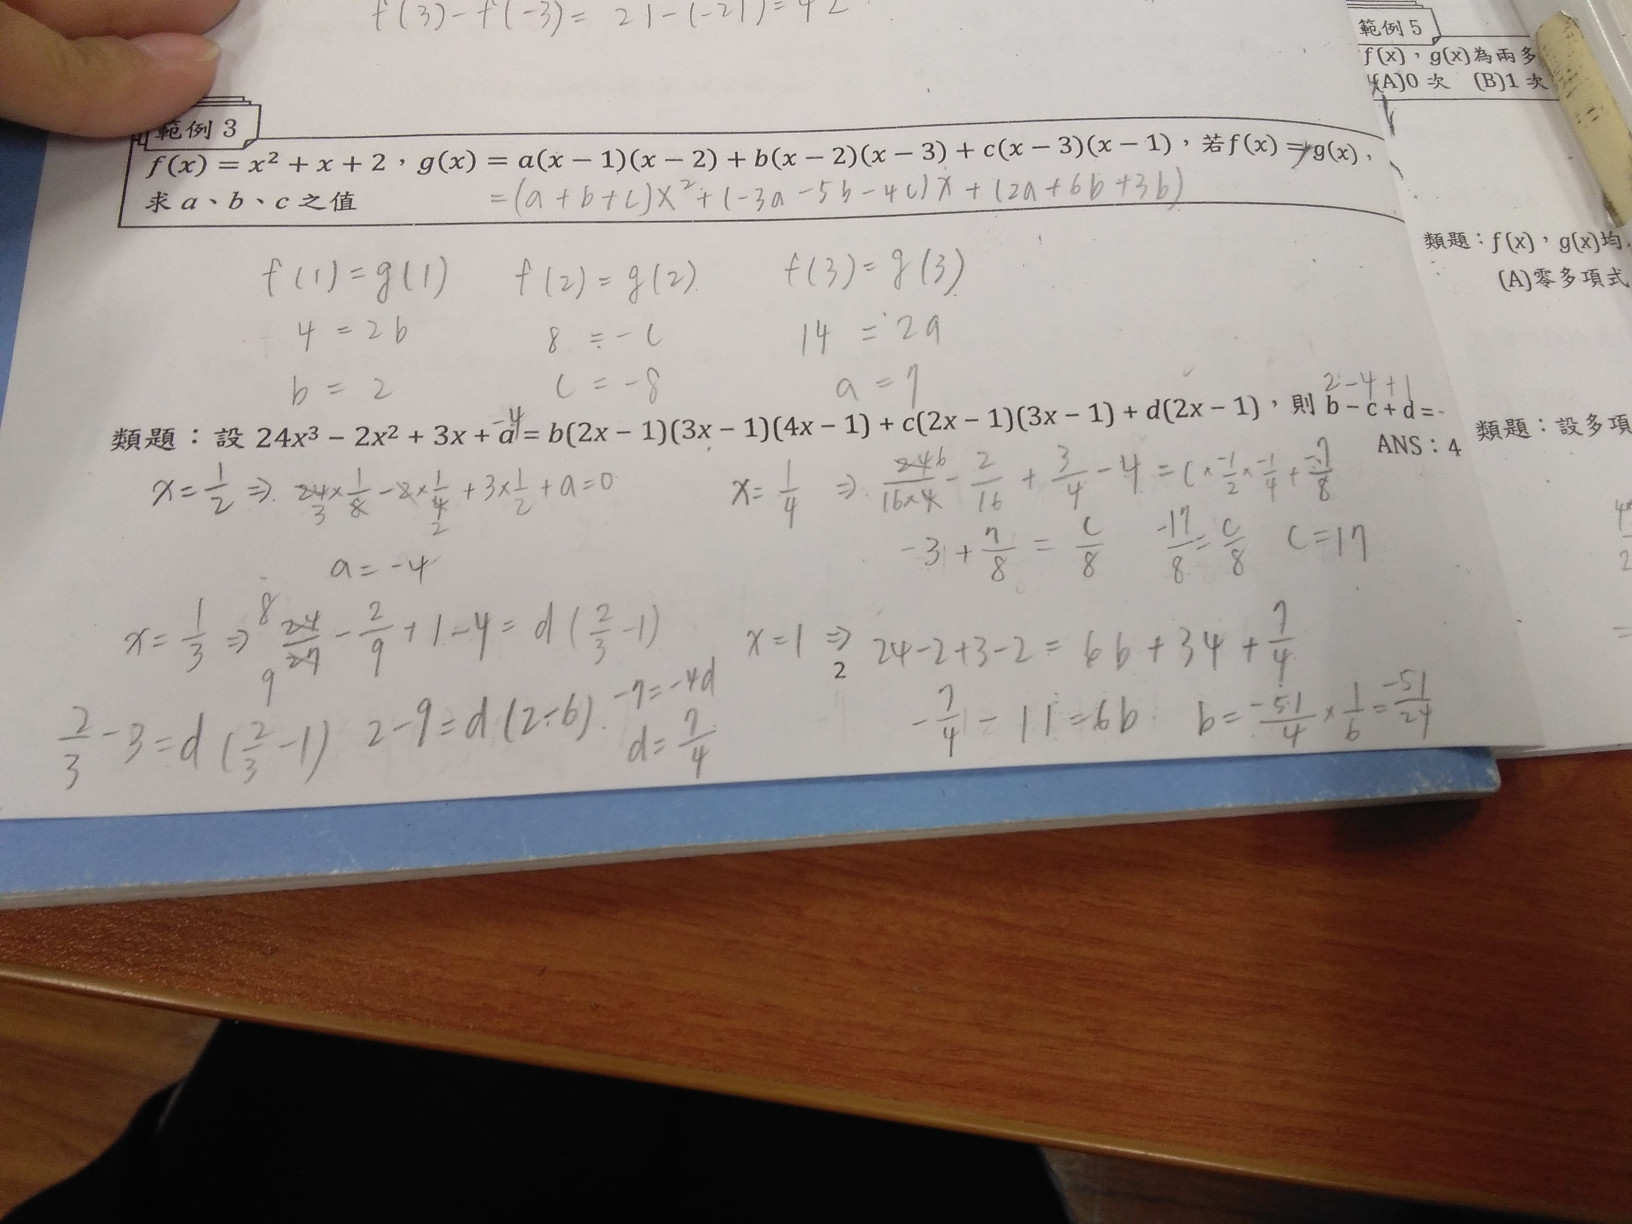 f(3)-f(-3)= 21-(-21)=42
範例 3
f(x) = x² + x + 2，g(x) = a(x − 1)(x − 2) + b(x − 2)(x − 3) + c(x − 3)(x − 1)，若f(x) = g(x)，
求 a、b、c 之值
=(a+b+c)x²+(-3a-5b-4c)x+(2a+6b+3b)
f(1)=g(1) f(2)=g(2) f(3)=g(3)
4 = 2b 8 = -c 14 = 2a
b = 2 c = -8 a = 7
-4 2-4+1
類題：設 24x³ − 2x² + 3x + a = b(2x − 1)(3x − 1)(4x − 1) + c(2x − 1)(3x − 1) + d(2x − 1)，則 b − c + d =
ANS：4
x=1/2 ⇒ 24/3×1/8-2×1/4/2+3×1/2+a=0
a=-4
x=1/4 ⇒ 24b/16×4-2/16+3/4-4=c×-1/2×-1/4+-7/8
-3+7/8=c/8 -17/8=c/8 c=17
x=1/3 ⇒ 8/9 24/27-2/9+1-4=d(2/3-1)
2/3-3=d(2/3-1) 2-9=d(2-6) -7=-4d
d=7/4
x=1 ⇒ 24-2+3-2=6b+34+7/4
-7/4-11=6b b=-51/4×1/6=-51/24
2
範例 5
f(x)，g(x)為兩多
(A)0 次 (B)1 次
類題：f(x)，g(x)均
(A)零多項式
類題：設多項